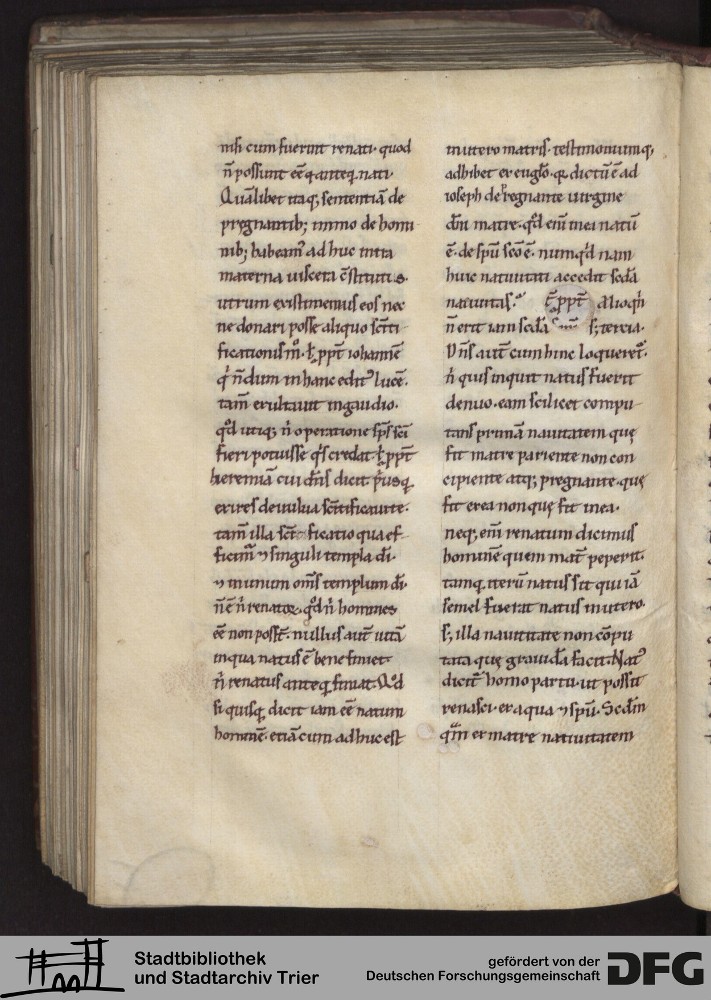 nisi cum fuerint renati. quod
n̄ possunt eē q̄ anteq̄ nati.
Quālibet itaq; sententiā de
pręgnantib; immo de homi
nib; habeam᷒ ad huc intra
materna uiscera c̄stitutis.
utrum existimemus eos nec
ne donari posse aliquo sc̄ti
ficationis m̊. ł ppt̄ iohannē
q̇ n̄dum in hanc edit᷒ lucē.
tam̄ exultauit in gaudio.
qd̄ utiq; n̄ operatione sp̄s sc̄i
fieri potuisse q̇s credat. ł ppt̄
hieremiā cui dn̄s dicit p᷒usq̄
exires de uulua sc̄tificaui te.
tam̄ illa sc̄tificatio qua ef
ficim᷒ ⁊ singuli templa dī.
⁊ in unum om̄s templum dī
n̄ ē n̄ renatoꝝ. qd̄ n̄ homines
eē non poss̄t. nullus aut̄ uitā
in qua natus ē bene finiet.
n̄ renatus anteq̄ finiat. Qd̄
si quisq̄ dicit iam eē natum
hominē. etiā cum adhuc est
in utero matris. testimoniumq;
adhibet ex euglīo. q̇a dictū ē ad
ioseph de p̄regnante uirgine
dn̄i matre. qd̄ enī in ea natū
ē. de spū sc̄o ē. numqd̄ nam
huic natiuitati accedit sc̄da
natiuitas. ł ppt̄ Alioq̇n
n̄ erit iam sc̄da s; tercia.
Dn̄s aut̄ cum hinc loqueret᷒.
n̄ quis inquit natus fuerit
denuo. eam scilicet compu
tans primā nauitatem quę
fit matre pariente non con
cipiente atq; pregnante. quę
fit ex ea non quę fit in ea.
neq; enī renatum dicimus
hominē quem mat̄ peperit.
tamq̄ iterū natus sit qui iā
semel fuerat natus in utero.
s; illa nauitate non cōpu
tata quę grauidā facit. Nat᷒
dicit᷒ homo partu. ut possit
renasci. ex aqua ⁊ spū. Scdm̄
quā ex matre natiuitatem
Stadtbibliothek
und Stadtarchiv Trier
gefördert von der
Deutschen Forschungsgemeinschaft
DFG